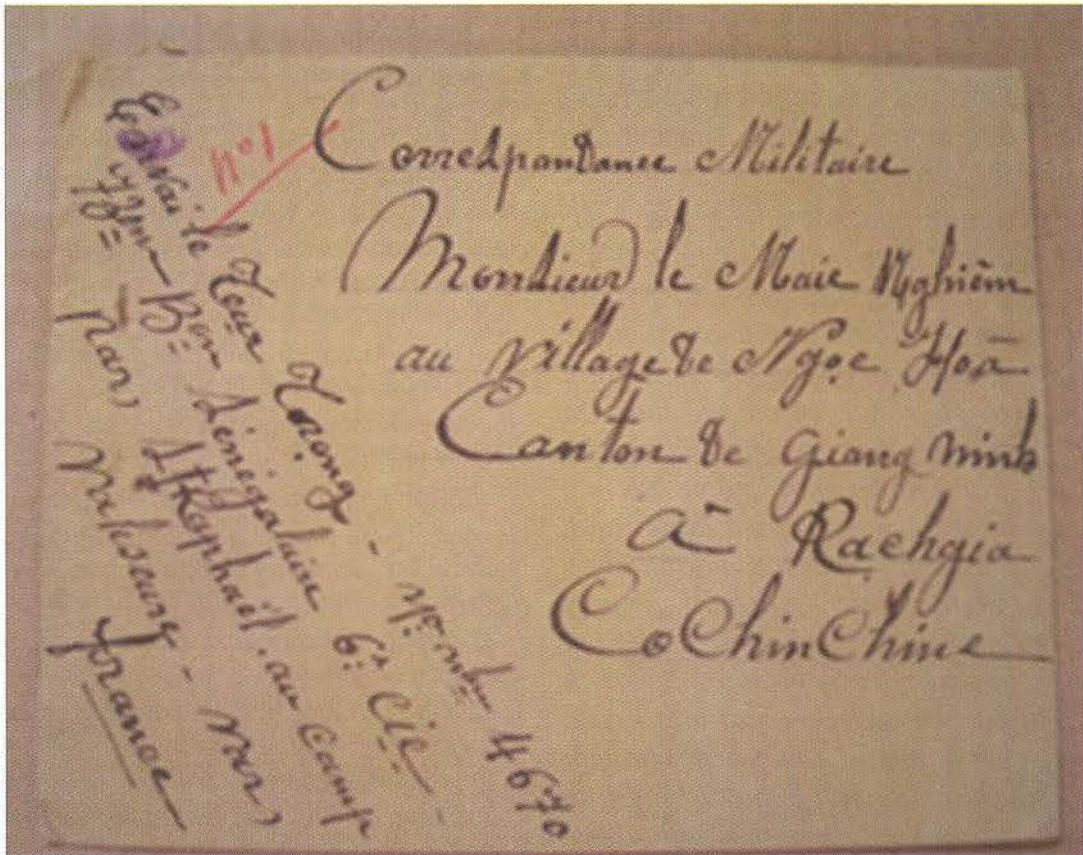 Correspondance Militaire
Monsieur le Maire Nghiêm
au village de Ngọc Hoà
Canton de Giang minh
à Rạchgia
CoChinChine
N°1
Envoi le Trọng - 4670
77em Bon Sénégalais 6e Cie -
par St Raphaël, au camp
- Var
France